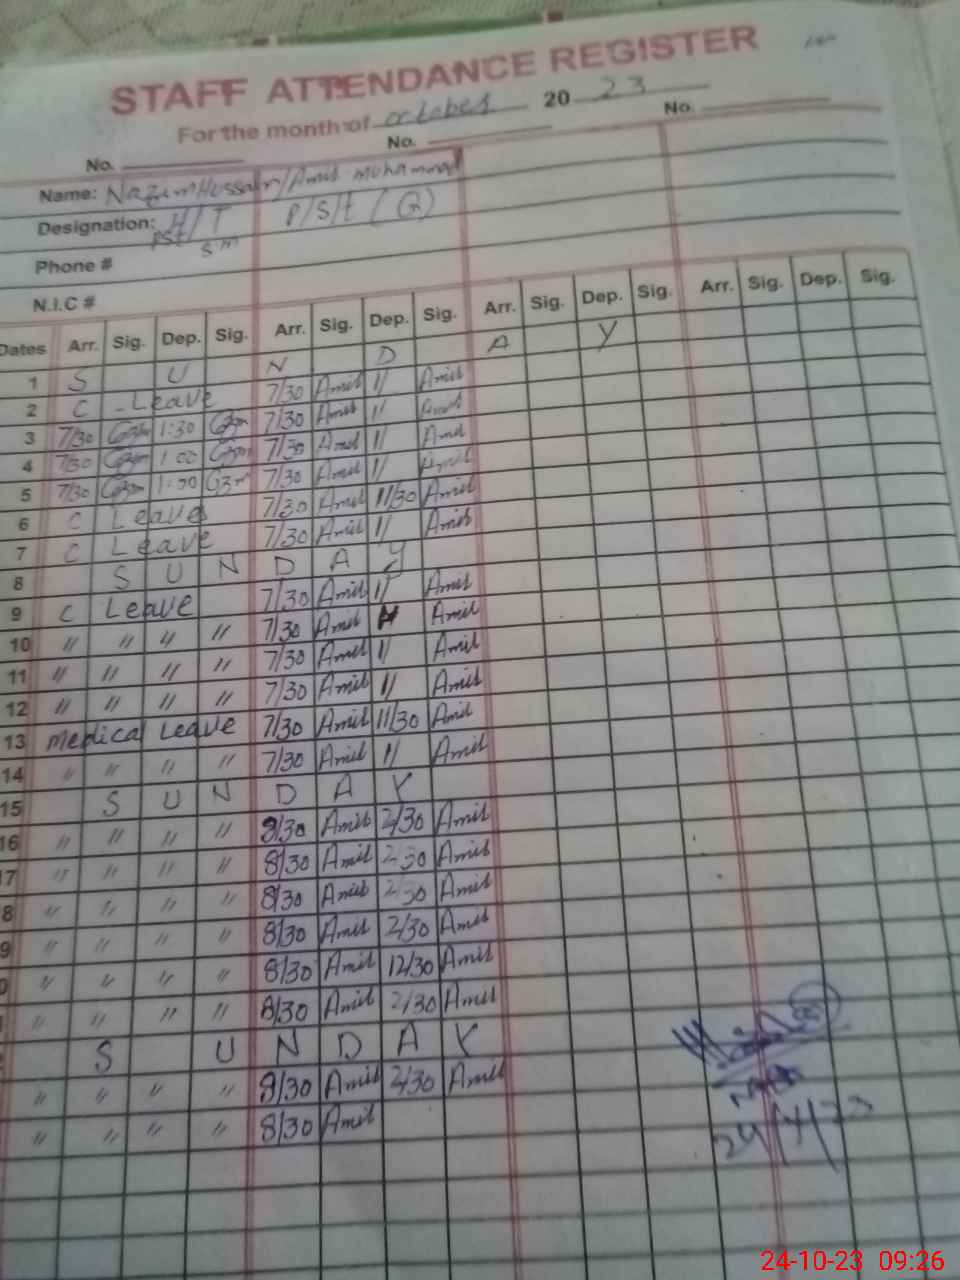 STAFF ATTENDANCE REGISTER
For the month of october 20 23
No. No. No.
Name: Nazim Hussain/Amil muhammad
Designation: H/T P/S/t (Q)
Pst sm
Phone #
N.I.C #
Dates Arr. Sig. Dep. Sig. Arr. Sig. Dep. Sig. Arr. Sig. Dep. Sig. Arr. Sig. Dep. Sig.
1 S U N D A Y
2 C - Leave 7/30 Amil 11 Amil
3 7/30 1:30 7/30 Amil 11 Amil
4 7/30 1:00 7/30 Amil 11 Amil
5 7/30 1:00 7/30 Amil 11 Amil
6 C Leave 7/30 Amil 11/30 Amil
7 C Leave 7/30 Amil 11 Amil
8 S U N D A Y
9 C Leave 7/30 Amil 11 Amil
10 " " " " 7/30 Amil Amil
11 " " " " 7/30 Amil 11 Amil
12 " " " " 7/30 Amil 11 Amil
13 medical Leave 7/30 Amil 11/30 Amil
14 " " " " 7/30 Amil 11 Amil
15 S U N D A Y
16 " " " " 8/30 Amil 2/30 Amil
17 " " " " 8/30 Amil 2/30 Amil
8 " " " " 8/30 Amil 2/30 Amil
9 " " " " 8/30 Amil 2/30 Amil
0 " " " " 8/30 Amil 12/30 Amil
" " " " 8/30 Amil 2/30 Amil
S U N D A Y
" " " " 8/30 Amil 2/30 Amil
" " " " 8/30 Amil
24-10-23 09:26